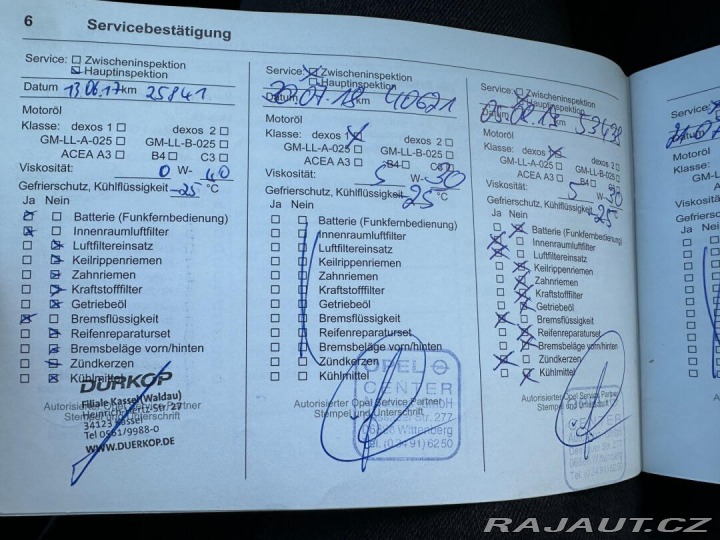 6 Servicebestätigung
Service: Zwischeninspektion
Hauptinspektion
Datum 13.06.17 km 25841
Motoröl
Klasse: dexos 1 dexos 2
GM-LL-A-025 GM-LL-B-025
ACEA A3 B4 C3
Viskosität: 0 W- 40
Gefrierschutz, Kühlflüssigkeit -25 °C
Ja Nein
Batterie (Funkfernbedienung)
Innenraumluftfilter
Luftfiltereinsatz
Keilrippenriemen
Zahnriemen
Kraftstofffilter
Getriebeöl
Bremsflüssigkeit
Reifenreparaturset
Bremsbeläge vorn/hinten
Zündkerzen
Kühlmittel
DÜRKOP
Filiale Kassel (Waldau)
Heinrich-Hertz-Str. 27
34123 Kassel
Tel 0561/9988-0
WWW.DUERKOP.DE
Autorisierter Opel Service Partner
Stempel und Unterschrift
Service: Zwischeninspektion
Hauptinspektion
Datum 07.18 km 40621
Motoröl
Klasse: dexos 1 dexos 2
GM-LL-A-025 GM-LL-B-025
ACEA A3 B4 C3
Viskosität: 5 W- 30
Gefrierschutz, Kühlflüssigkeit -25 °C
Ja Nein
Batterie (Funkfernbedienung)
Innenraumluftfilter
Luftfiltereinsatz
Keilrippenriemen
Zahnriemen
Kraftstofffilter
Getriebeöl
Bremsflüssigkeit
Reifenreparaturset
Bremsbeläge vorn/hinten
Zündkerzen
Kühlmittel
OPEL
CENTER
GmbH
Str. 277
Wittenberg
Tel. (03491) 6250
Autorisierter Opel Service Partner
Stempel und Unterschrift
Service: Zwischeninspektion
Hauptinspektion
Datum km 53438
Motoröl
Klasse: dexos 1 dexos 2
GM-LL-A-025 GM-LL-B-025
ACEA A3 B4 C3
Viskosität: 5 W- 30
Gefrierschutz, Kühlflüssigkeit -25 °C
Ja Nein
Batterie (Funkfernbedienung)
Innenraumluftfilter
Luftfiltereinsatz
Keilrippenriemen
Zahnriemen
Kraftstofffilter
Getriebeöl
Bremsflüssigkeit
Reifenreparaturset
Bremsbeläge vorn/hinten
Zündkerzen
Kühlmittel
Autorisierter Opel Service Partner
Stempel und Unterschrift
Service:
Datum
Motoröl
Klasse:
Viskosität
Gefriersch
Ja Nein
RAJAUT.CZ